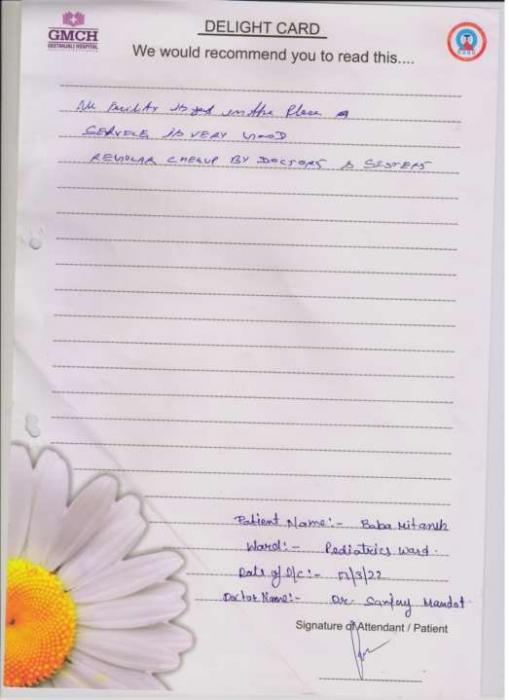 GMCH
GEETANJALI HOSPITAL
DELIGHT CARD
We would recommend you to read this....
All Facility is good in the Place &
SERVICE IS VERY GOOD
REGULAR CHEKUP BY DOCTORS & SISTERS
Patient Name:- Baba Mitansh
Ward:- Pediatrics Ward.
Date of D/c:-
Doctor Name:- Dr. Sanjay Mandot
Signature of Attendant / Patient